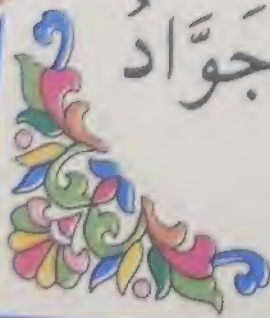 جَوَّادُ